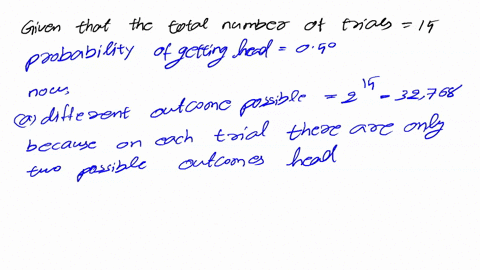 Given that the total number of trials = 15
probability of getting head = 0.50
now,
(a) different outcome possible = 2^15 - 32,768
because on each trial there are only
two possible outcomes head